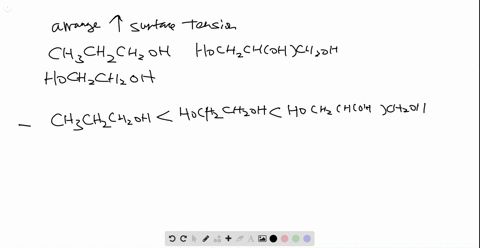 arrange ↑ surface tension
CH3CH2CH2OH HOCH2CH(OH)CH2OH
HOCH2CH2OH
- CH3CH2CH2OH < HOCH2CH2OH < HOCH2CH(OH)CH2OH